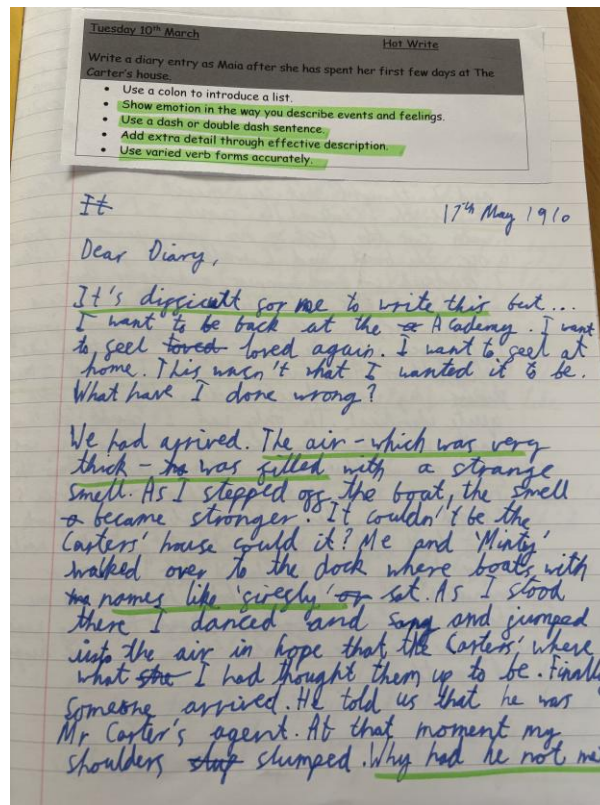 Tuesday 10th March
Hot Write
Write a diary entry as Maia after she has spent her first few days at The
Carter's house.
• Use a colon to introduce a list.
• Show emotion in the way you describe events and feelings.
• Use a dash or double dash sentence.
• Add extra detail through effective description.
• Use varied verb forms accurately.
It
17th May 1910
Dear Diary,
It's difficult for me to write this but...
I want to be back at the Academy. I want
to feel loved loved again. I want to feel at
home. This wasn't what I wanted it to be.
What have I done wrong?
We had arrived. The air - which was very
thick - was filled with a strange
smell. As I stepped off the boat, the smell
became stronger. It couldn't be the
Carters' house could it? Me and 'Minty'
walked over to the dock where boats with
names like 'firefly' or sat. As I stood
there I danced and sang and jumped
into the air in hope that the Carters' where
what she I had thought them up to be. Finally
someone arrived. He told us that he was
Mr Carter's agent. At that moment my
shoulders slump slumped. Why had he not me